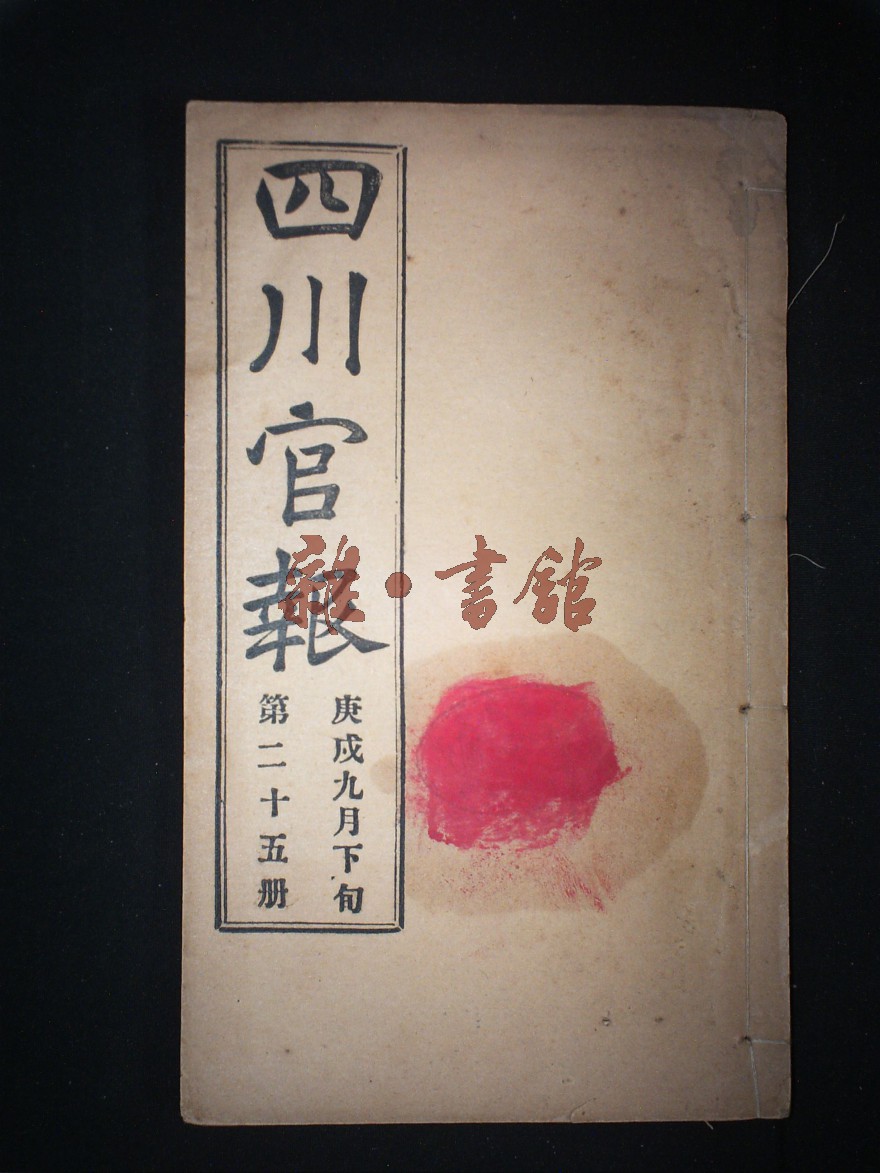 四川官報
庚戌九月下旬
第二十五册
雜·書館